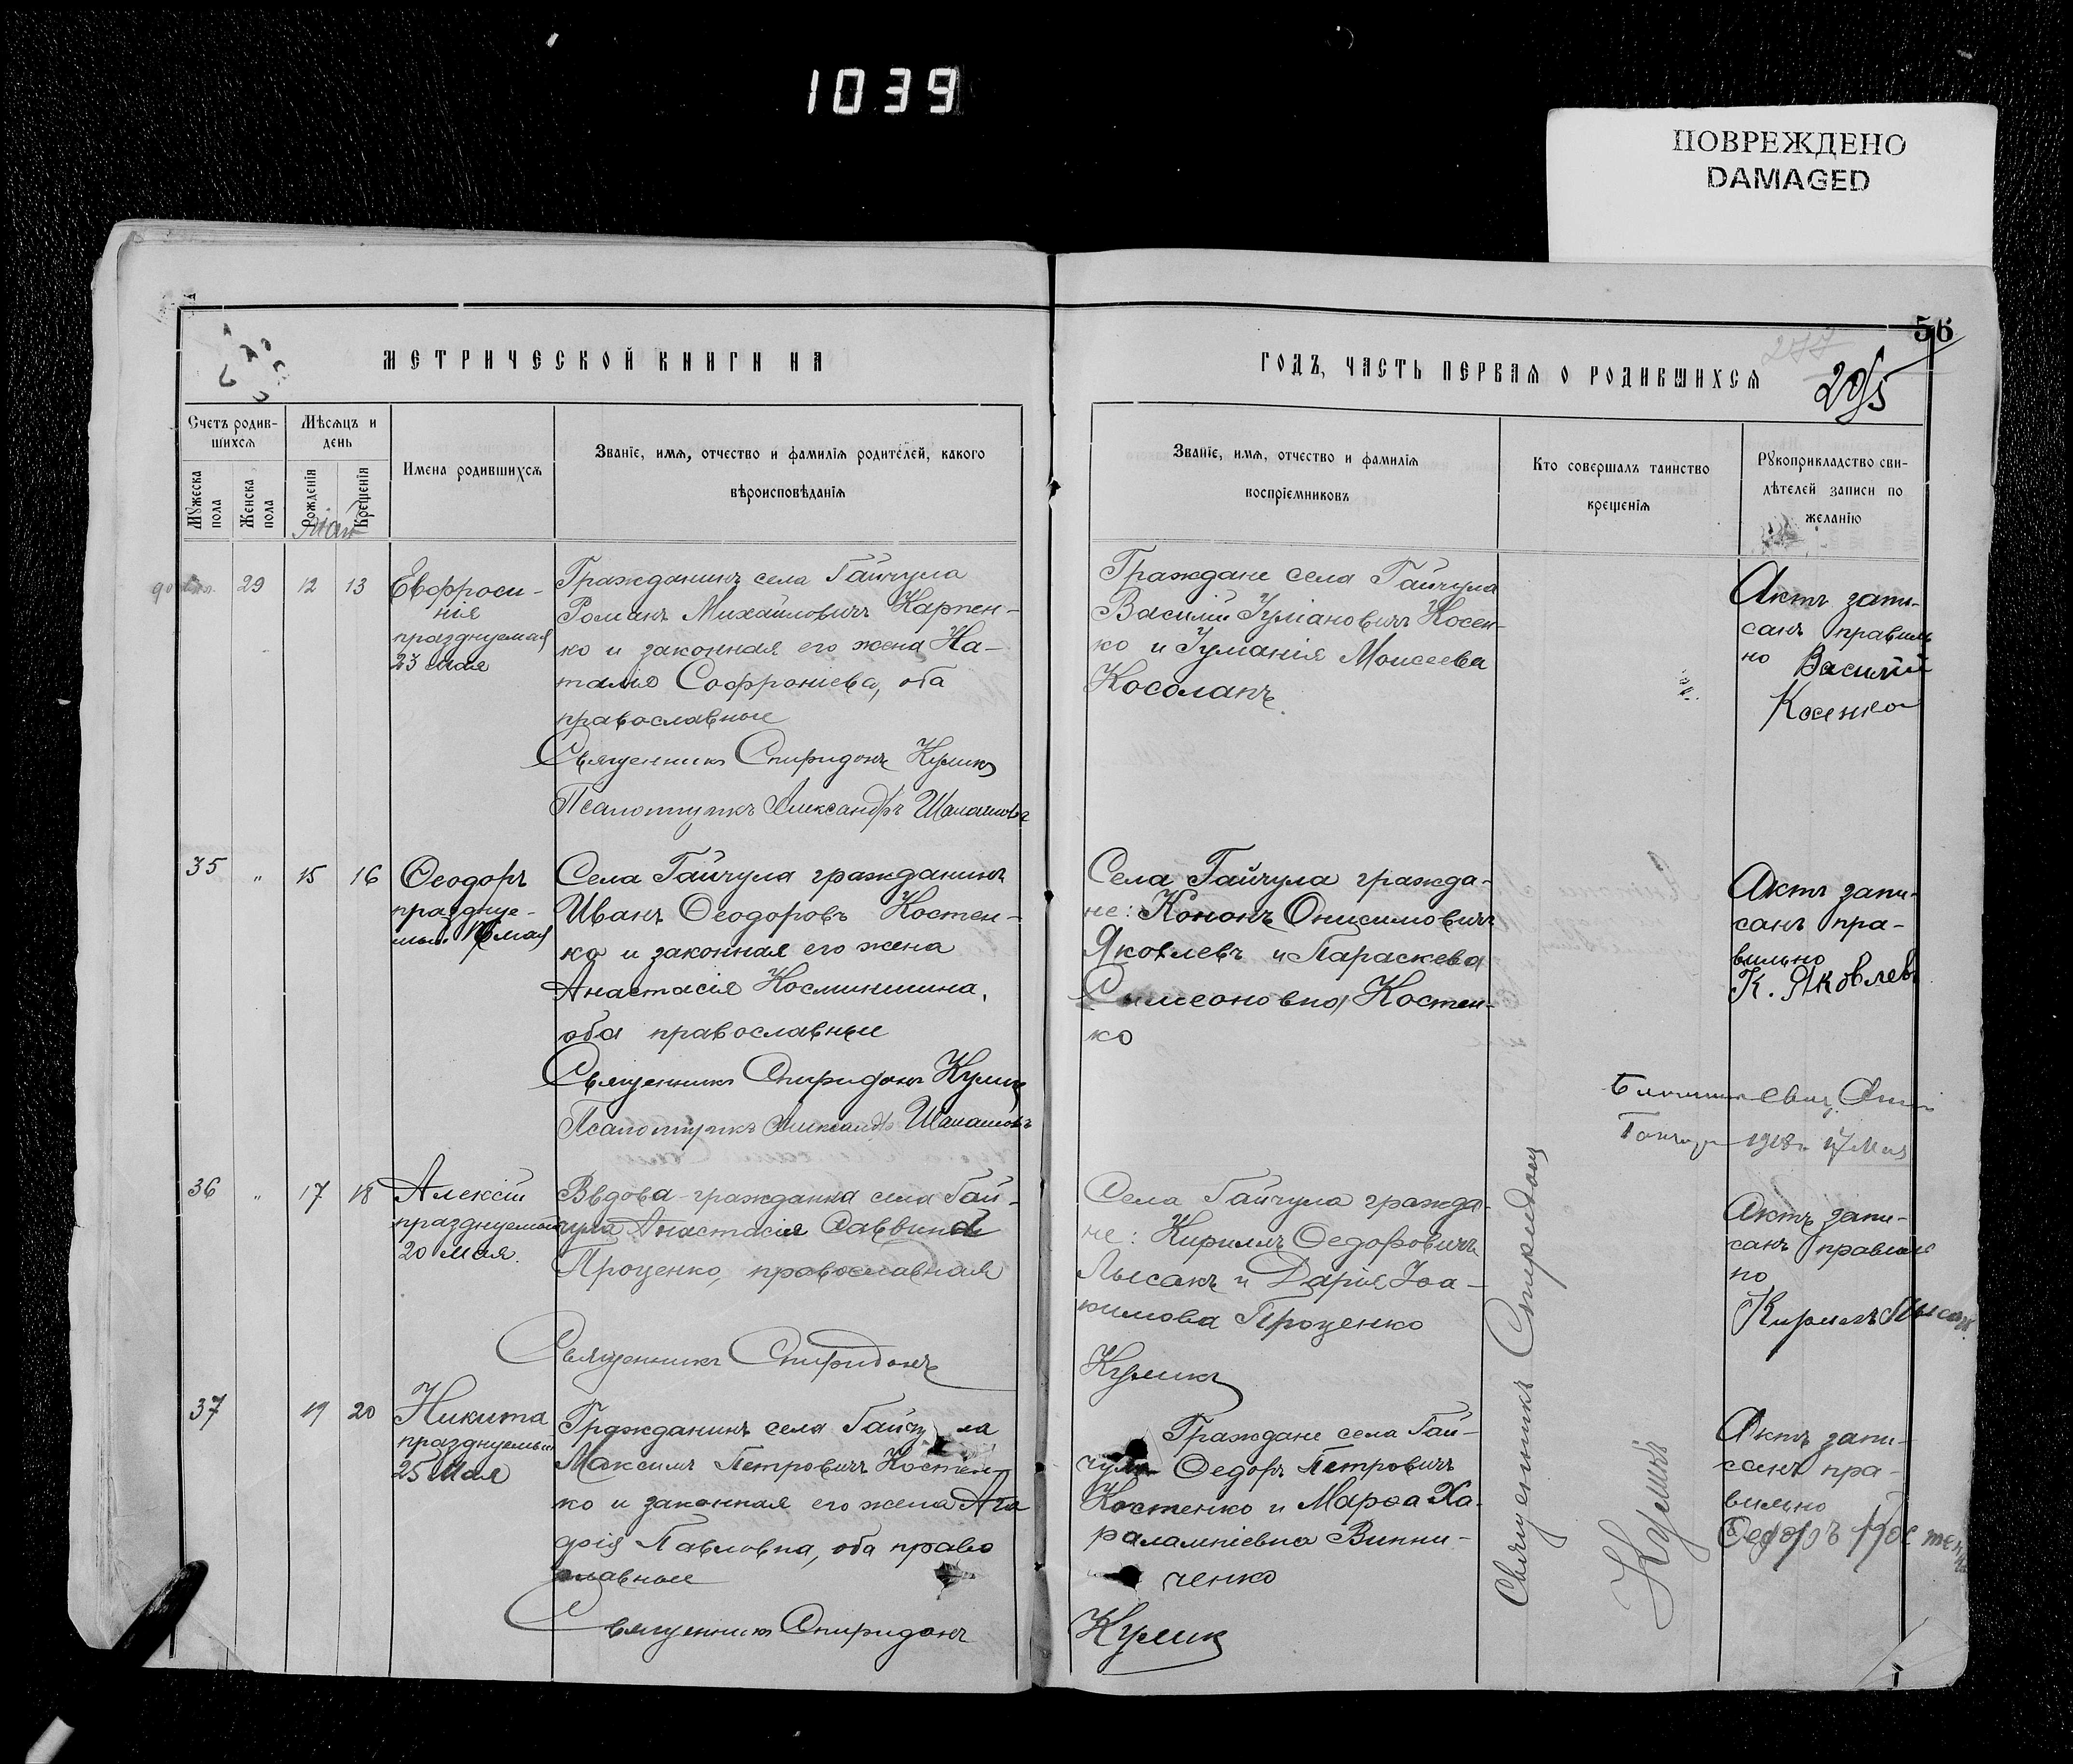 1039
ПОВРЕЖДЕНО
DAMAGED
56
МЕТРИЧЕСКОЙ КНИГИ НА
ГОДЪ, ЧАСТЬ ПЕРВАЯ О РОДИВШИХСЯ
295
Счетъ родив-
шихся
Мѣсяцъ и
день
Мужеска
пола
Женска
пола
Рожденія
Крещенія
Имена родившихся
Званіе, имя, отчество и фамилія родителей, какого
вѣроисповѣданія
Званіе, имя, отчество и фамилія
воспріемниковъ
Кто совершалъ таинство
крещенія
Рукоприкладство сви-
дѣтелей записи по
желанію
Май
29 12 13
Евфроси-
нія
празднуемая
23 мая
Гражданинъ села Гайчула
Романъ Михайловичъ Карпен-
ко и законная его жена На-
талія Софроніева, оба
православные
Священникъ Спиридонъ Куликъ
Псаломщикъ Александръ
Граждане села Гайчула
Василій Іуліановичъ Косен-
ко и Іуліанія Моисеева
Косоланъ
Актъ запи-
санъ правиль
но Василій
Косенко
35 " 15 16
Ѳеодоръ
праздную-
мый мая
Села Гайчула гражданинъ
Иванъ Ѳеодоровъ Костен-
ко и законная его жена
Анастасія Косминична,
оба православные
Священникъ Спиридонъ Куликъ
Псаломщикъ Александръ
Села Гайчула гражда-
не: Кононъ Онисимовичъ
Яковлевъ и Параскева
Сѵмеоновна Костен-
ко
Актъ запи-
санъ пра-
вильно
К. Яковлевъ
1918 г. 17 Мая
36 " 17 18
Алексій
празднуемый
20 мая
Вдова-гражданка села Гай-
чула Анастасія Саввина
Проценко, православная
Священникъ Спиридонъ
Села Гайчула гражда-
не: Кириллъ Ѳедоровичъ
Лысакъ и Дарія Іоа-
кимова Проценко
Куликъ
Актъ запи-
санъ правиль
но
Кирилъ Лысакъ
37 19 20
Никита
празднуемый
25 мая
Гражданинъ села Гайчула
Максимъ Петровичъ Костен-
ко и законная его жена Ага
фія Павловна, оба право
славные
Священникъ Спиридонъ
Граждане села Гай-
чула Ѳедоръ Петровичъ
Костенко и Марѳа Ха-
ралампіевна Винни-
ченко
Куликъ
Актъ запи-
санъ пра-
вильно
Ѳедоръ Костенко
Священникъ Спиридонъ
Куликъ